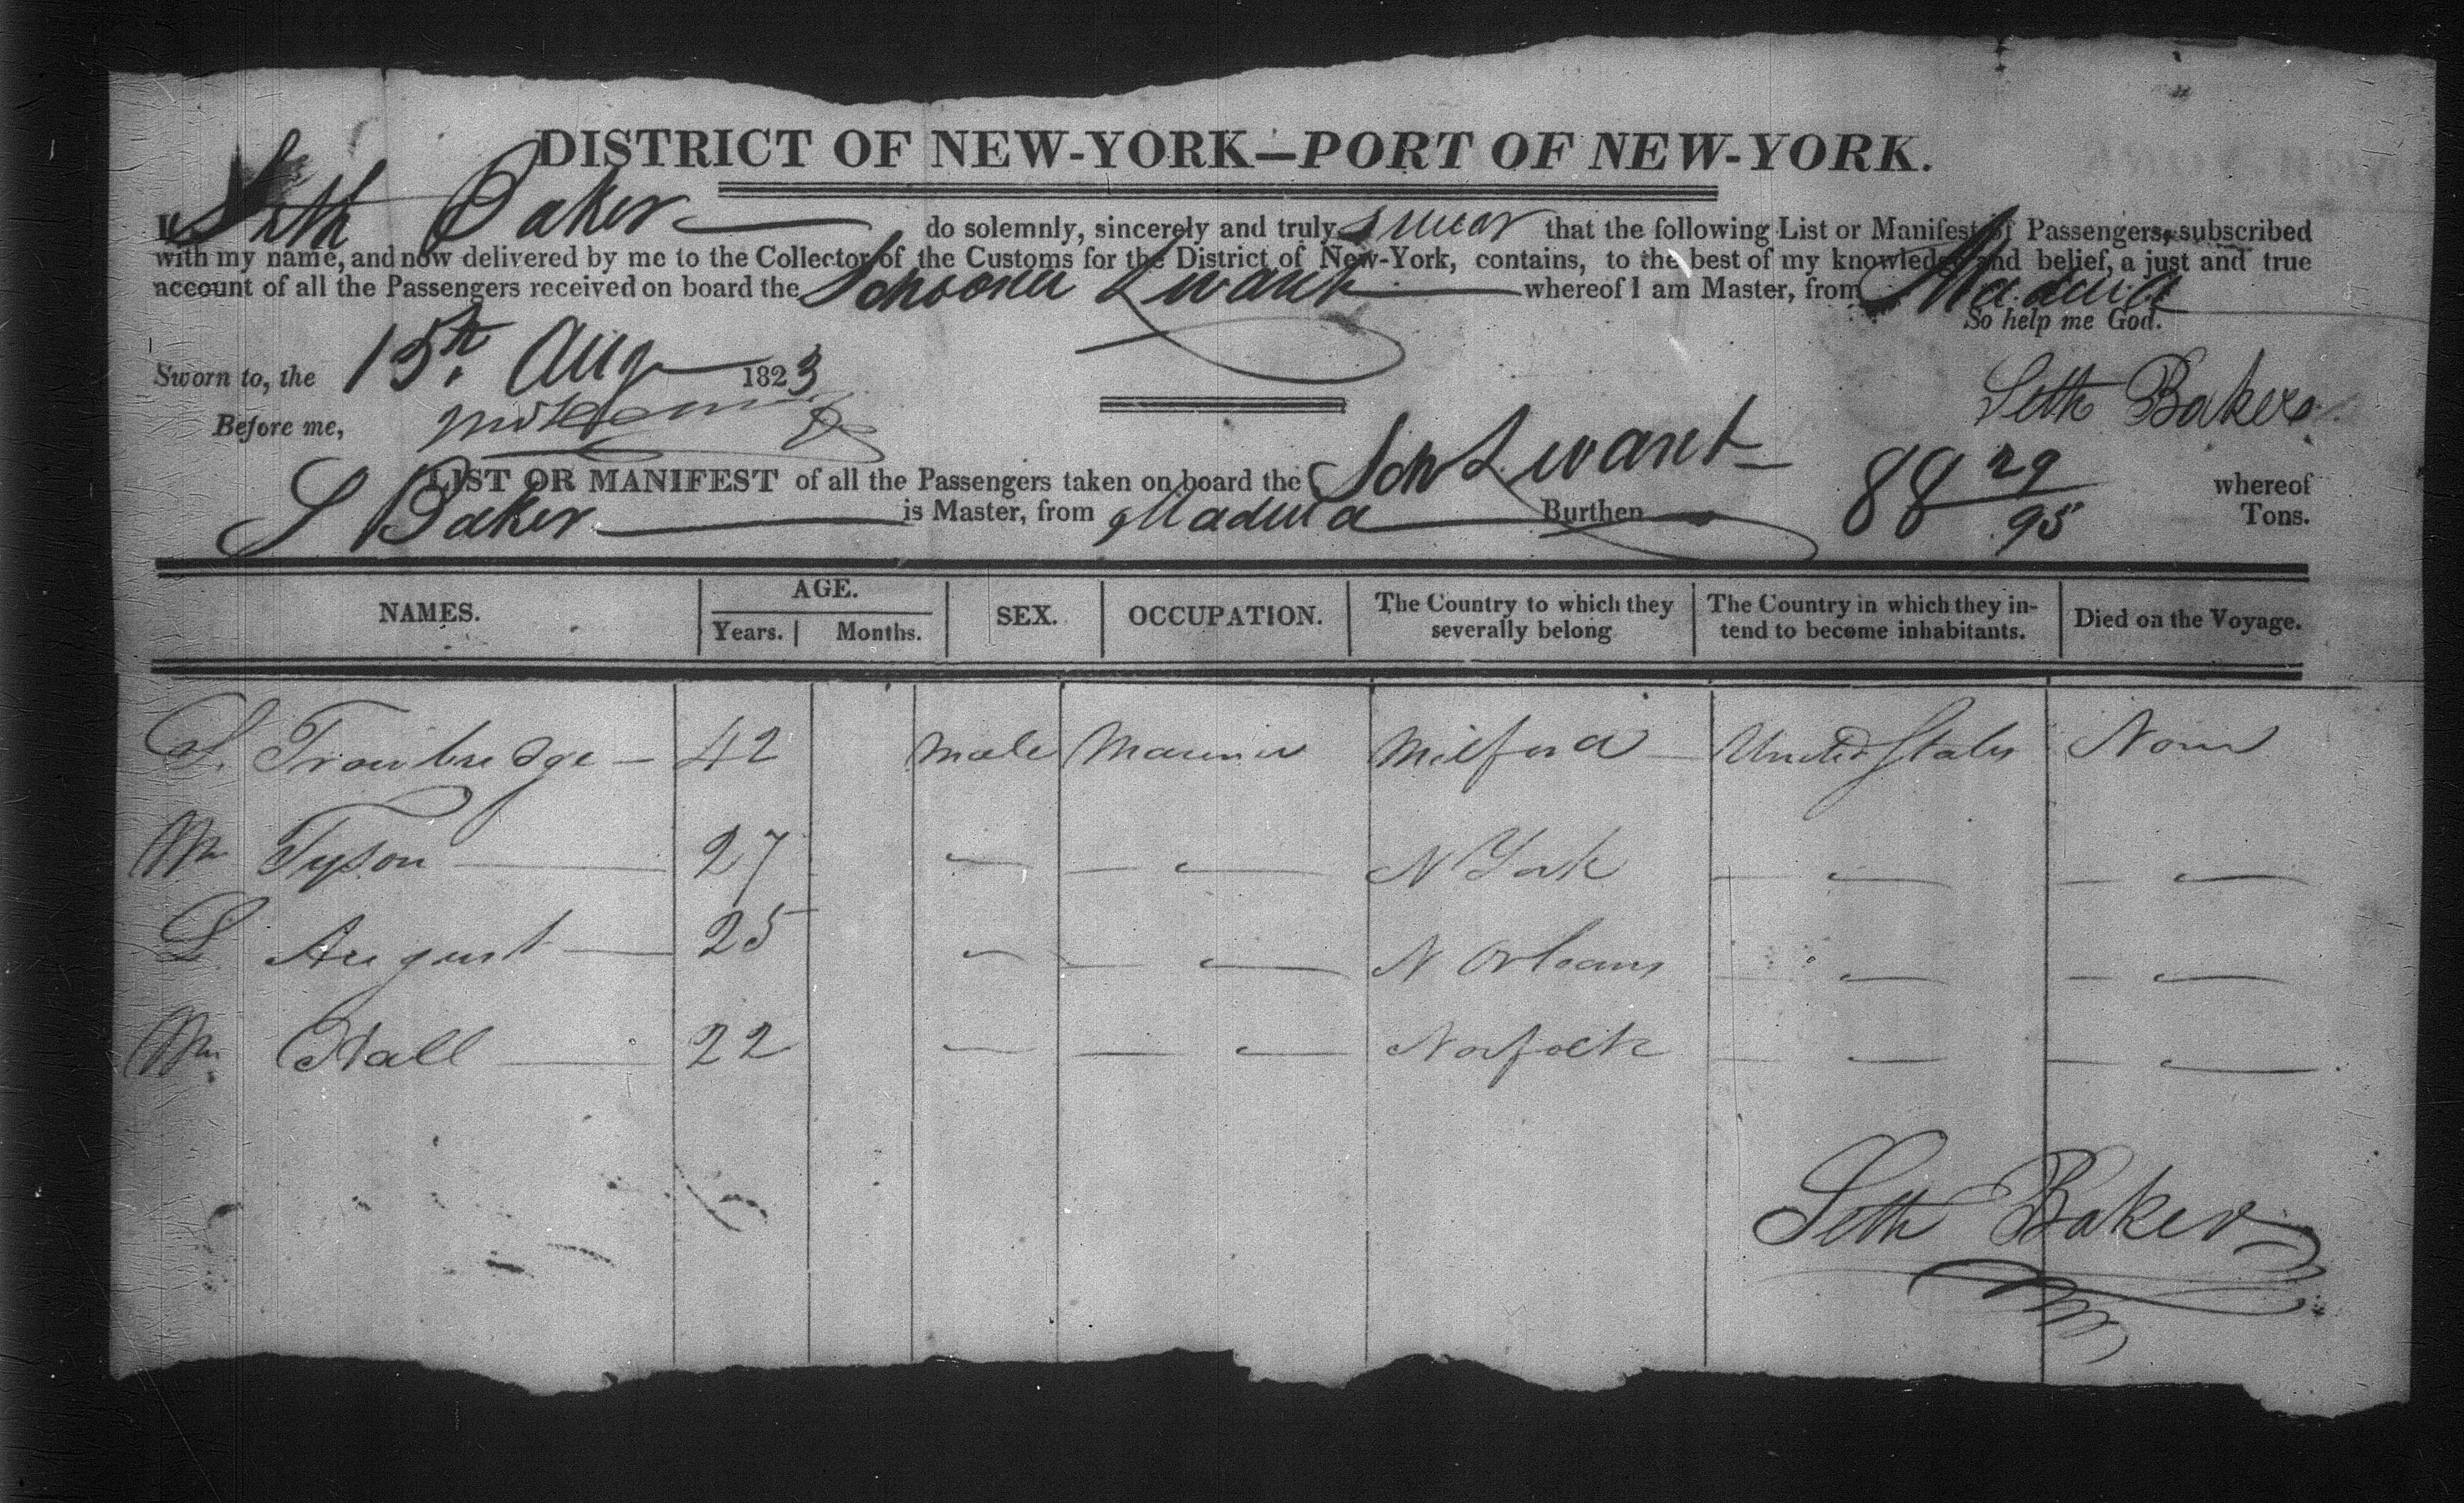 DISTRICT OF NEW-YORK—PORT OF NEW-YORK.
I, Seth Baker do solemnly, sincerely and truly swear that the following List or Manifest of Passengers, subscribed
with my name, and now delivered by me to the Collector of the Customs for the District of New-York, contains, to the best of my knowledge and belief, a just and true
account of all the Passengers received on board the Schooner Levant whereof I am Master, from Madeira
So help me God.
Sworn to, the 15th. Aug 1823
Seth Baker
Before me,
LIST OR MANIFEST of all the Passengers taken on board the Schr Levant whereof
S Baker is Master, from Madeira Burthen 88 29/95 Tons.
NAMES. AGE. SEX. OCCUPATION. The Country to which they severally belong The Country in which they intend to become inhabitants. Died on the Voyage.
Years. Months.
S. Trowbridge — 42 Male Mariner Milford United States None
Wm Tyson — 27 — — N York — —
L August — 25 — — N Orleans — —
Wm. Hall — 22 — — Norfolk — —
Seth Baker